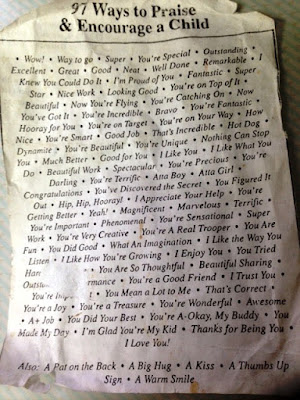 97 Ways to Praise
& Encourage a Child
• Wow! • Way to go • Super • You're Special • Outstanding •
Excellent • Great • Good • Neat • Well Done • Remarkable • I
Knew You Could Do It • I'm Proud of You • Fantastic • Super
Star • Nice Work • Looking Good • You're on Top of It •
Beautiful • Now You're Flying • You're Catching on • Now
You've Got It • You're Incredible • Bravo • You're Fantastic •
Hooray for You • You're on Target • You're on Your Way • How
Nice • You're Smart • Good Job • That's Incredible • Hot Dog
Dynamite • You're Beautiful • You're Unique • Nothing Can Stop
You • Much Better • Good for You • I Like You • I Like What You
Do • Beautiful Work • Spectacular • You're Precious • You're
Darling • You're Terrific • Atta Boy • Atta Girl •
Congratulations • You've Discovered the Secret • You Figured It
Out • Hip, Hip, Hooray! • I Appreciate Your Help • You're
Getting Better • Yeah! • Magnificent • Marvelous • Terrific •
You're Important • Phenomenal • You're Sensational • Super
Work • You're Very Creative • You're A Real Trooper • You Are
Fun • You Did Good • What An Imagination • I Like the Way You
Listen • I Like How You're Growing • I Enjoy You • You Tried
• You Are So Thoughtful • Beautiful Sharing
• You're a Good Friend • I Trust You •
You're • You Mean a Lot to Me • That's Correct •
You're a Joy • You're a Treasure • You're Wonderful • Awesome
• A+ Job • You Did Your Best • You're A-Okay, My Buddy • You
Made My Day • I'm Glad You're My Kid • Thanks for Being You
• I Love You!
Also: • A Pat on the Back • A Big Hug • A Kiss • A Thumbs Up
Sign • A Warm Smile